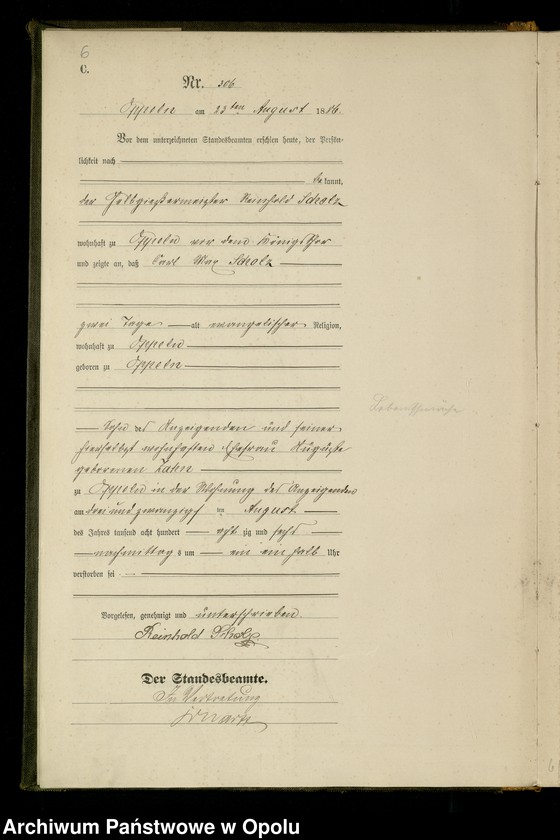 6
C.
Nr. 306
Oppeln am 23ten August 1886.
Vor dem unterzeichneten Standesbeamten erschien heute, der Persön-
lichkeit nach
be kannt,
der Gelbgießermeister Reinhold Scholz
wohnhaft zu Oppeln vor dem
und zeigte an, daß Carl Max Scholz
zwei Tage alt evangelischer Religion,
wohnhaft zu Oppeln
geboren zu Oppeln
Sohn des Anzeigenden und seiner
hierselbst wohnhaften Ehefrau Auguste
geborenen
zu Oppeln in der Wohnung des Anzeigenden
am drei und zwanzigsten August
des Jahres tausend acht hundert acht zig und sechs
nachmittag s um ein ein halb Uhr
verstorben sei
Vorgelesen, genehmigt und unterschrieben
Reinhold Scholz
Der Standesbeamte.
In Vertretung
Lebensschwäche
Archiwum Państwowe w Opolu